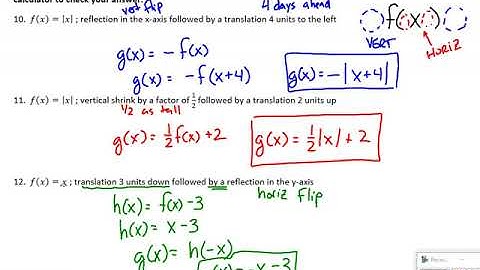 calculator to check your answer.
vert flip
4 days ahead
10. f(x) = |x| ; reflection in the x-axis followed by a translation 4 units to the left
f(x)
VERT
HORIZ
g(x) = -f(x)
g(x) = -f(x+4)
g(x) = -|x+4|
11. f(x) = |x| ; vertical shrink by a factor of 1/2 followed by a translation 2 units up
1/2 as tall
g(x) = 1/2 f(x) + 2
g(x) = 1/2|x| + 2
12. f(x) = x ; translation 3 units down followed by a reflection in the y-axis
horiz flip
h(x) = f(x) - 3
h(x) = x - 3
g(x) = h(-x)
= -x - 3